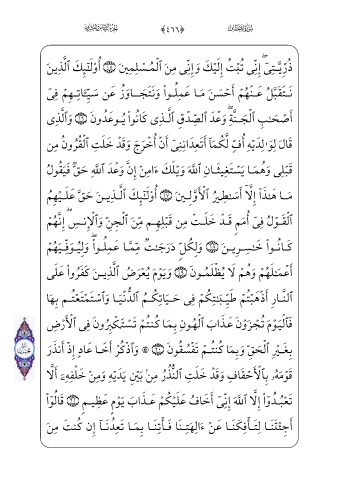 سورة الأحقاف ﴿٤٦٦﴾ الجزء السادس والعشرون
ذُرِّيَّتِىٓۖ إِنِّى تُبْتُ إِلَيْكَ وَإِنِّى مِنَ ٱلْمُسْلِمِينَ ۝ أُو۟لَٰٓئِكَ ٱلَّذِينَ
نَتَقَبَّلُ عَنْهُمْ أَحْسَنَ مَا عَمِلُوا۟ وَنَتَجَاوَزُ عَن سَيِّـَٔاتِهِمْ فِىٓ
أَصْحَٰبِ ٱلْجَنَّةِۖ وَعْدَ ٱلصِّدْقِ ٱلَّذِى كَانُوا۟ يُوعَدُونَ ۝ وَٱلَّذِى
قَالَ لِوَٰلِدَيْهِ أُفٍّ لَّكُمَآ أَتَعِدَانِنِىٓ أَنْ أُخْرَجَ وَقَدْ خَلَتِ ٱلْقُرُونُ مِن
قَبْلِى وَهُمَا يَسْتَغِيثَانِ ٱللَّهَ وَيْلَكَ ءَامِنْ إِنَّ وَعْدَ ٱللَّهِ حَقٌّ فَيَقُولُ
مَا هَٰذَآ إِلَّآ أَسَٰطِيرُ ٱلْأَوَّلِينَ ۝ أُو۟لَٰٓئِكَ ٱلَّذِينَ حَقَّ عَلَيْهِمُ
ٱلْقَوْلُ فِىٓ أُمَمٍ قَدْ خَلَتْ مِن قَبْلِهِم مِّنَ ٱلْجِنِّ وَٱلْإِنسِۖ إِنَّهُمْ
كَانُوا۟ خَٰسِرِينَ ۝ وَلِكُلٍّ دَرَجَٰتٌ مِّمَّا عَمِلُوا۟ۖ وَلِيُوَفِّيَهُمْ
أَعْمَٰلَهُمْ وَهُمْ لَا يُظْلَمُونَ ۝ وَيَوْمَ يُعْرَضُ ٱلَّذِينَ كَفَرُوا۟ عَلَى
ٱلنَّارِ أَذْهَبْتُمْ طَيِّبَٰتِكُمْ فِى حَيَاتِكُمُ ٱلدُّنْيَا وَٱسْتَمْتَعْتُم بِهَا
فَٱلْيَوْمَ تُجْزَوْنَ عَذَابَ ٱلْهُونِ بِمَا كُنتُمْ تَسْتَكْبِرُونَ فِى ٱلْأَرْضِ
بِغَيْرِ ٱلْحَقِّ وَبِمَا كُنتُمْ تَفْسُقُونَ ۝ ۞ وَٱذْكُرْ أَخَا عَادٍ إِذْ أَنذَرَ
قَوْمَهُۥ بِٱلْأَحْقَافِ وَقَدْ خَلَتِ ٱلنُّذُرُ مِنۢ بَيْنِ يَدَيْهِ وَمِنْ خَلْفِهِۦٓ أَلَّا
تَعْبُدُوٓا۟ إِلَّا ٱللَّهَ إِنِّىٓ أَخَافُ عَلَيْكُمْ عَذَابَ يَوْمٍ عَظِيمٍ ۝ قَالُوٓا۟
أَجِئْتَنَا لِتَأْفِكَنَا عَنْ ءَالِهَتِنَا فَأْتِنَا بِمَا تَعِدُنَآ إِن كُنتَ مِنَ